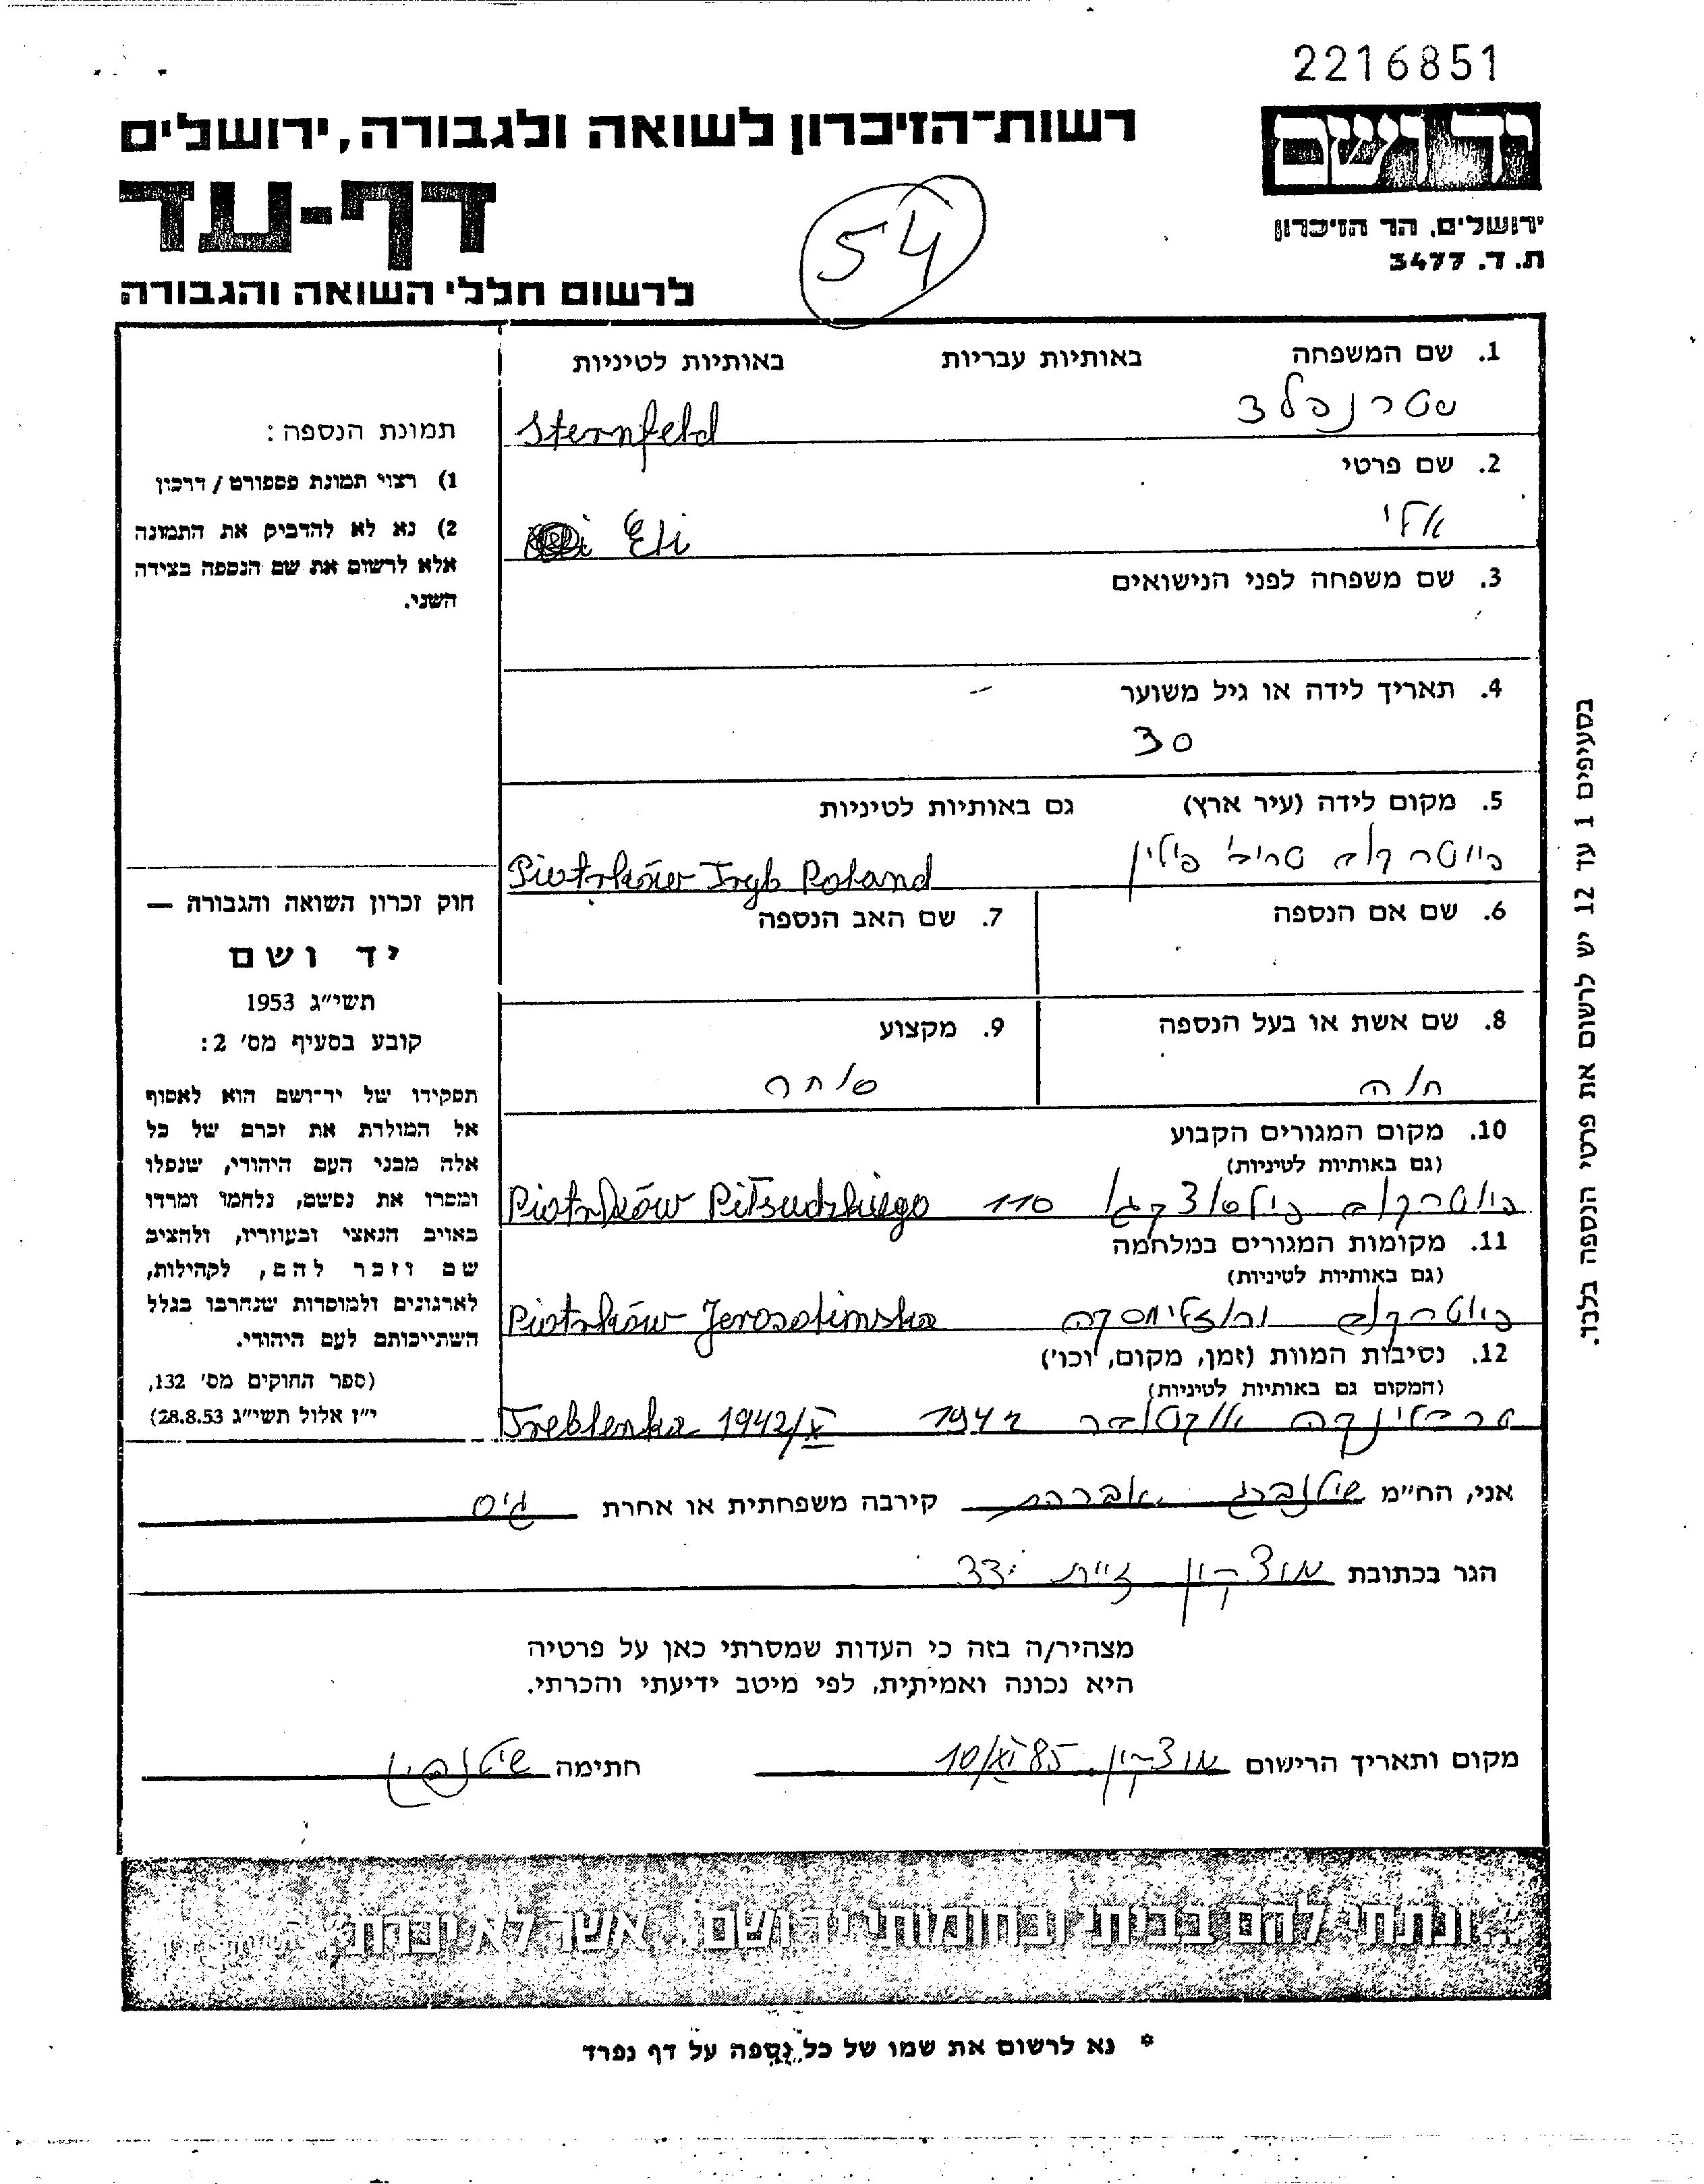 2216851
יד ושם
רשות־הזיכרון לשואה ולגבורה, ירושלים
דף-עד
54
ירושלים, הר הזיכרון
ת. ד. 3477
לרשום חללי השואה והגבורה
1. שם המשפחה באותיות עבריות באותיות לטיניות
שטרנפלד Sternfeld
2. שם פרטי
אלי Eli
3. שם משפחה לפני הנישואים
4. תאריך לידה או גיל משוער
30
5. מקום לידה (עיר ארץ) גם באותיות לטיניות
פיוטרקוב טריב' פולין Piotrków Tryb Poland
6. שם אם הנספה 7. שם האב הנספה
8. שם אשת או בעל הנספה 9. מקצוע
חוה סוחר
10. מקום המגורים הקבוע
(גם באותיות לטיניות)
פיוטרקוב פילסודצקגו 110 Piotrków Piłsudzkiego
11. מקומות המגורים במלחמה
(גם באותיות לטיניות)
פיוטרקוב Piotrków Jerosolimska
12. נסיבות המוות (זמן, מקום, וכו')
(המקום גם באותיות לטיניות)
טרבלינקה אוקטובר 1942 Treblenka 1942/X
תמונת הנספה:
1) רצוי תמונת פספורט / דרכון
2) נא לא להדביק את התמונה
אלא לרשום את שם הנספה בצידה
השני.
חוק זכרון השואה והגבורה —
יד ושם
תשי״ג 1953
קובע בסעיף מס' 2:
תפקידו של יד־ושם הוא לאסוף
אל המולדת את זכרם של כל
אלה מבני העם היהודי, שנפלו
ומסרו את נפשם, נלחמו ומרדו
באויב הנאצי ובעוזריו, ולהציב
שם וזכר להם, לקהילות,
לארגונים ולמוסדות שנחרבו בגלל
השתייכותם לעם היהודי.
(ספר החוקים מס' 132,
י״ז אלול תשי״ג 28.8.53)
בסעיפים 1 עד 12 יש לרשום את פרטי הנספה בלבד.
אני, הח״מ אברהם קירבה משפחתית או אחרת גיס
הגר בכתובת מוצקין
מצהיר/ה בזה כי העדות שמסרתי כאן על פרטיה
היא נכונה ואמיתית, לפי מיטב ידיעתי והכרתי.
מקום ותאריך הרישום מוצקין 10/XI 85 חתימה
״ונתתי להם בביתי ובחומותי יד ושם... אשר לא יכרת״
* נא לרשום את שמו של כל נספה על דף נפרד